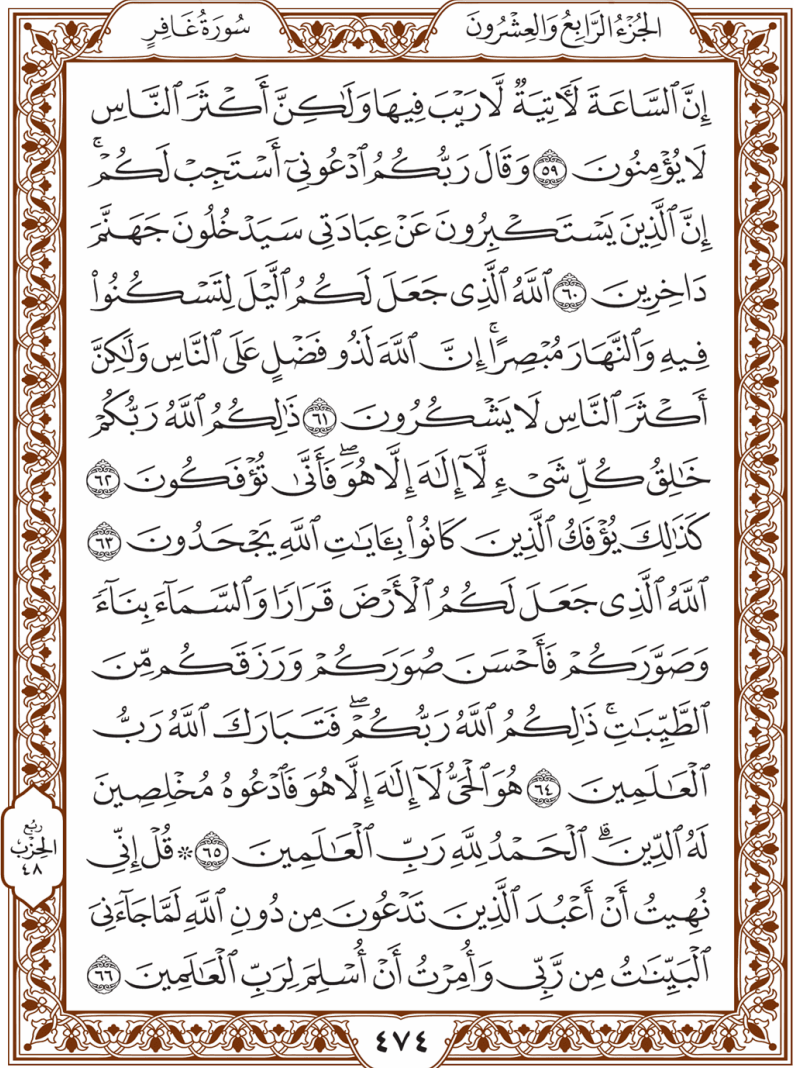 الجُزْءُ الرَّابِعُ وَالعِشْرُونَ
سُورَةُ غَافِرٍ
إِنَّ ٱلسَّاعَةَ لَأٓتِيَةٞ لَّا رَيۡبَ فِيهَا وَلَٰكِنَّ أَكۡثَرَ ٱلنَّاسِ
لَا يُؤۡمِنُونَ ٥٩ وَقَالَ رَبُّكُمُ ٱدۡعُونِيٓ أَسۡتَجِبۡ لَكُمۡۚ
إِنَّ ٱلَّذِينَ يَسۡتَكۡبِرُونَ عَنۡ عِبَادَتِي سَيَدۡخُلُونَ جَهَنَّمَ
دَاخِرِينَ ٦٠ ٱللَّهُ ٱلَّذِي جَعَلَ لَكُمُ ٱلَّيۡلَ لِتَسۡكُنُواْ
فِيهِ وَٱلنَّهَارَ مُبۡصِرًاۚ إِنَّ ٱللَّهَ لَذُو فَضۡلٍ عَلَى ٱلنَّاسِ وَلَٰكِنَّ
أَكۡثَرَ ٱلنَّاسِ لَا يَشۡكُرُونَ ٦١ ذَٰلِكُمُ ٱللَّهُ رَبُّكُمۡ
خَٰلِقُ كُلِّ شَيۡءٖ لَّآ إِلَٰهَ إِلَّا هُوَۖ فَأَنَّىٰ تُؤۡفَكُونَ ٦٢
كَذَٰلِكَ يُؤۡفَكُ ٱلَّذِينَ كَانُواْ بِـَٔايَٰتِ ٱللَّهِ يَجۡحَدُونَ ٦٣
ٱللَّهُ ٱلَّذِي جَعَلَ لَكُمُ ٱلۡأَرۡضَ قَرَارٗا وَٱلسَّمَآءَ بِنَآءٗ
وَصَوَّرَكُمۡ فَأَحۡسَنَ صُوَرَكُمۡ وَرَزَقَكُم مِّنَ
ٱلطَّيِّبَٰتِۚ ذَٰلِكُمُ ٱللَّهُ رَبُّكُمۡۖ فَتَبَارَكَ ٱللَّهُ رَبُّ
ٱلۡعَٰلَمِينَ ٦٤ هُوَ ٱلۡحَيُّ لَآ إِلَٰهَ إِلَّا هُوَ فَٱدۡعُوهُ مُخۡلِصِينَ
لَهُ ٱلدِّينَۗ ٱلۡحَمۡدُ لِلَّهِ رَبِّ ٱلۡعَٰلَمِينَ ٦٥ ۞ قُلۡ إِنِّي
نُهِيتُ أَنۡ أَعۡبُدَ ٱلَّذِينَ تَدۡعُونَ مِن دُونِ ٱللَّهِ لَمَّا جَآءَنِيَ
ٱلۡبَيِّنَٰتُ مِن رَّبِّي وَأُمِرۡتُ أَنۡ أُسۡلِمَ لِرَبِّ ٱلۡعَٰلَمِينَ ٦٦
رُبُع
الحِزْب
٤٨
٤٧٤